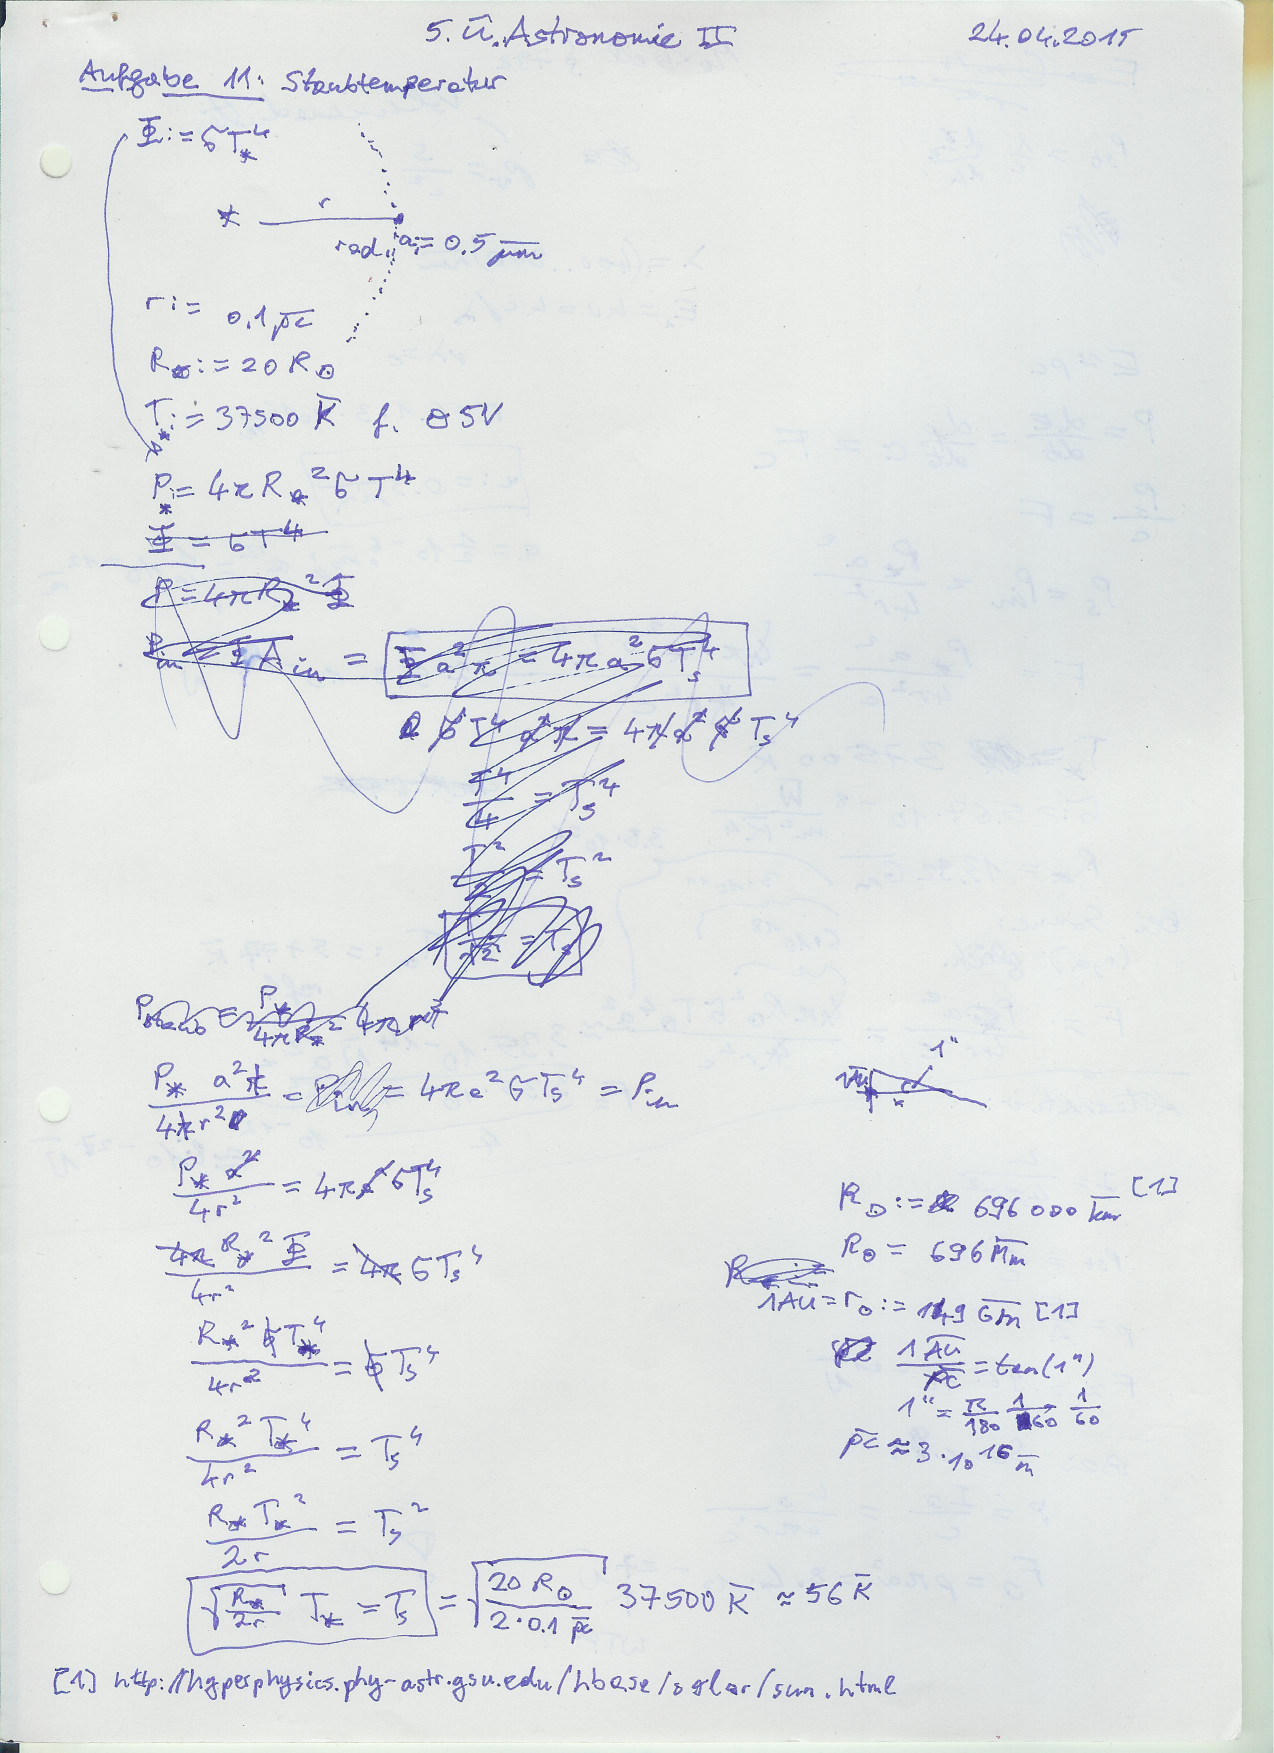 5. Ü. Astronomie II 24.04.2015
Aufgabe 11: Staubtemperatur
Φ := σT_*^4
* r
rad. a := 0.5 μm
r := 0.1 pc
R_* := 20 R_⊙
T_* := 37500 K f. O5V
P_* := 4πR_*^2 σ T^4
Φ = σT^4
P = 4πR_*^2 Φ
P_in = Φ A_in = Φ a^2 π = 4π a^2 σ T_s^4
σ T^4 a^2 π = 4π a^2 σ T_s^4
T^4/4 = T_s^4
T^2/2 = T_s^2
T/√2 = T_s
P_* a^2 π / 4π r^2 = 4π a^2 σ T_s^4 = P_in
P_* a^2 / 4r^2 = 4π a^2 σ T_s^4
4π R_*^2 Φ / 4r^2 = 4π σ T_s^4
R_*^2 σ T_*^4 / 4r^2 = σ T_s^4
R_*^2 T_*^4 / 4r^2 = T_s^4
R_* T_*^2 / 2r = T_s^2
√(R_*/2r) T_* = T_s = √(20 R_⊙ / 2·0.1 pc) 37500 K ≈ 56 K
1"
1AU
x
R_⊙ := 696 000 km [1]
R_⊙ = 696 Mm
1AU = r_⊙ := 149 Gm [1]
1 AU / pc = tan(1")
1" = π/180 1/60 1/60
pc ≈ 3·10^16 m
[1] http://hyperphysics.phy-astr.gsu.edu/hbase/solar/sun.html